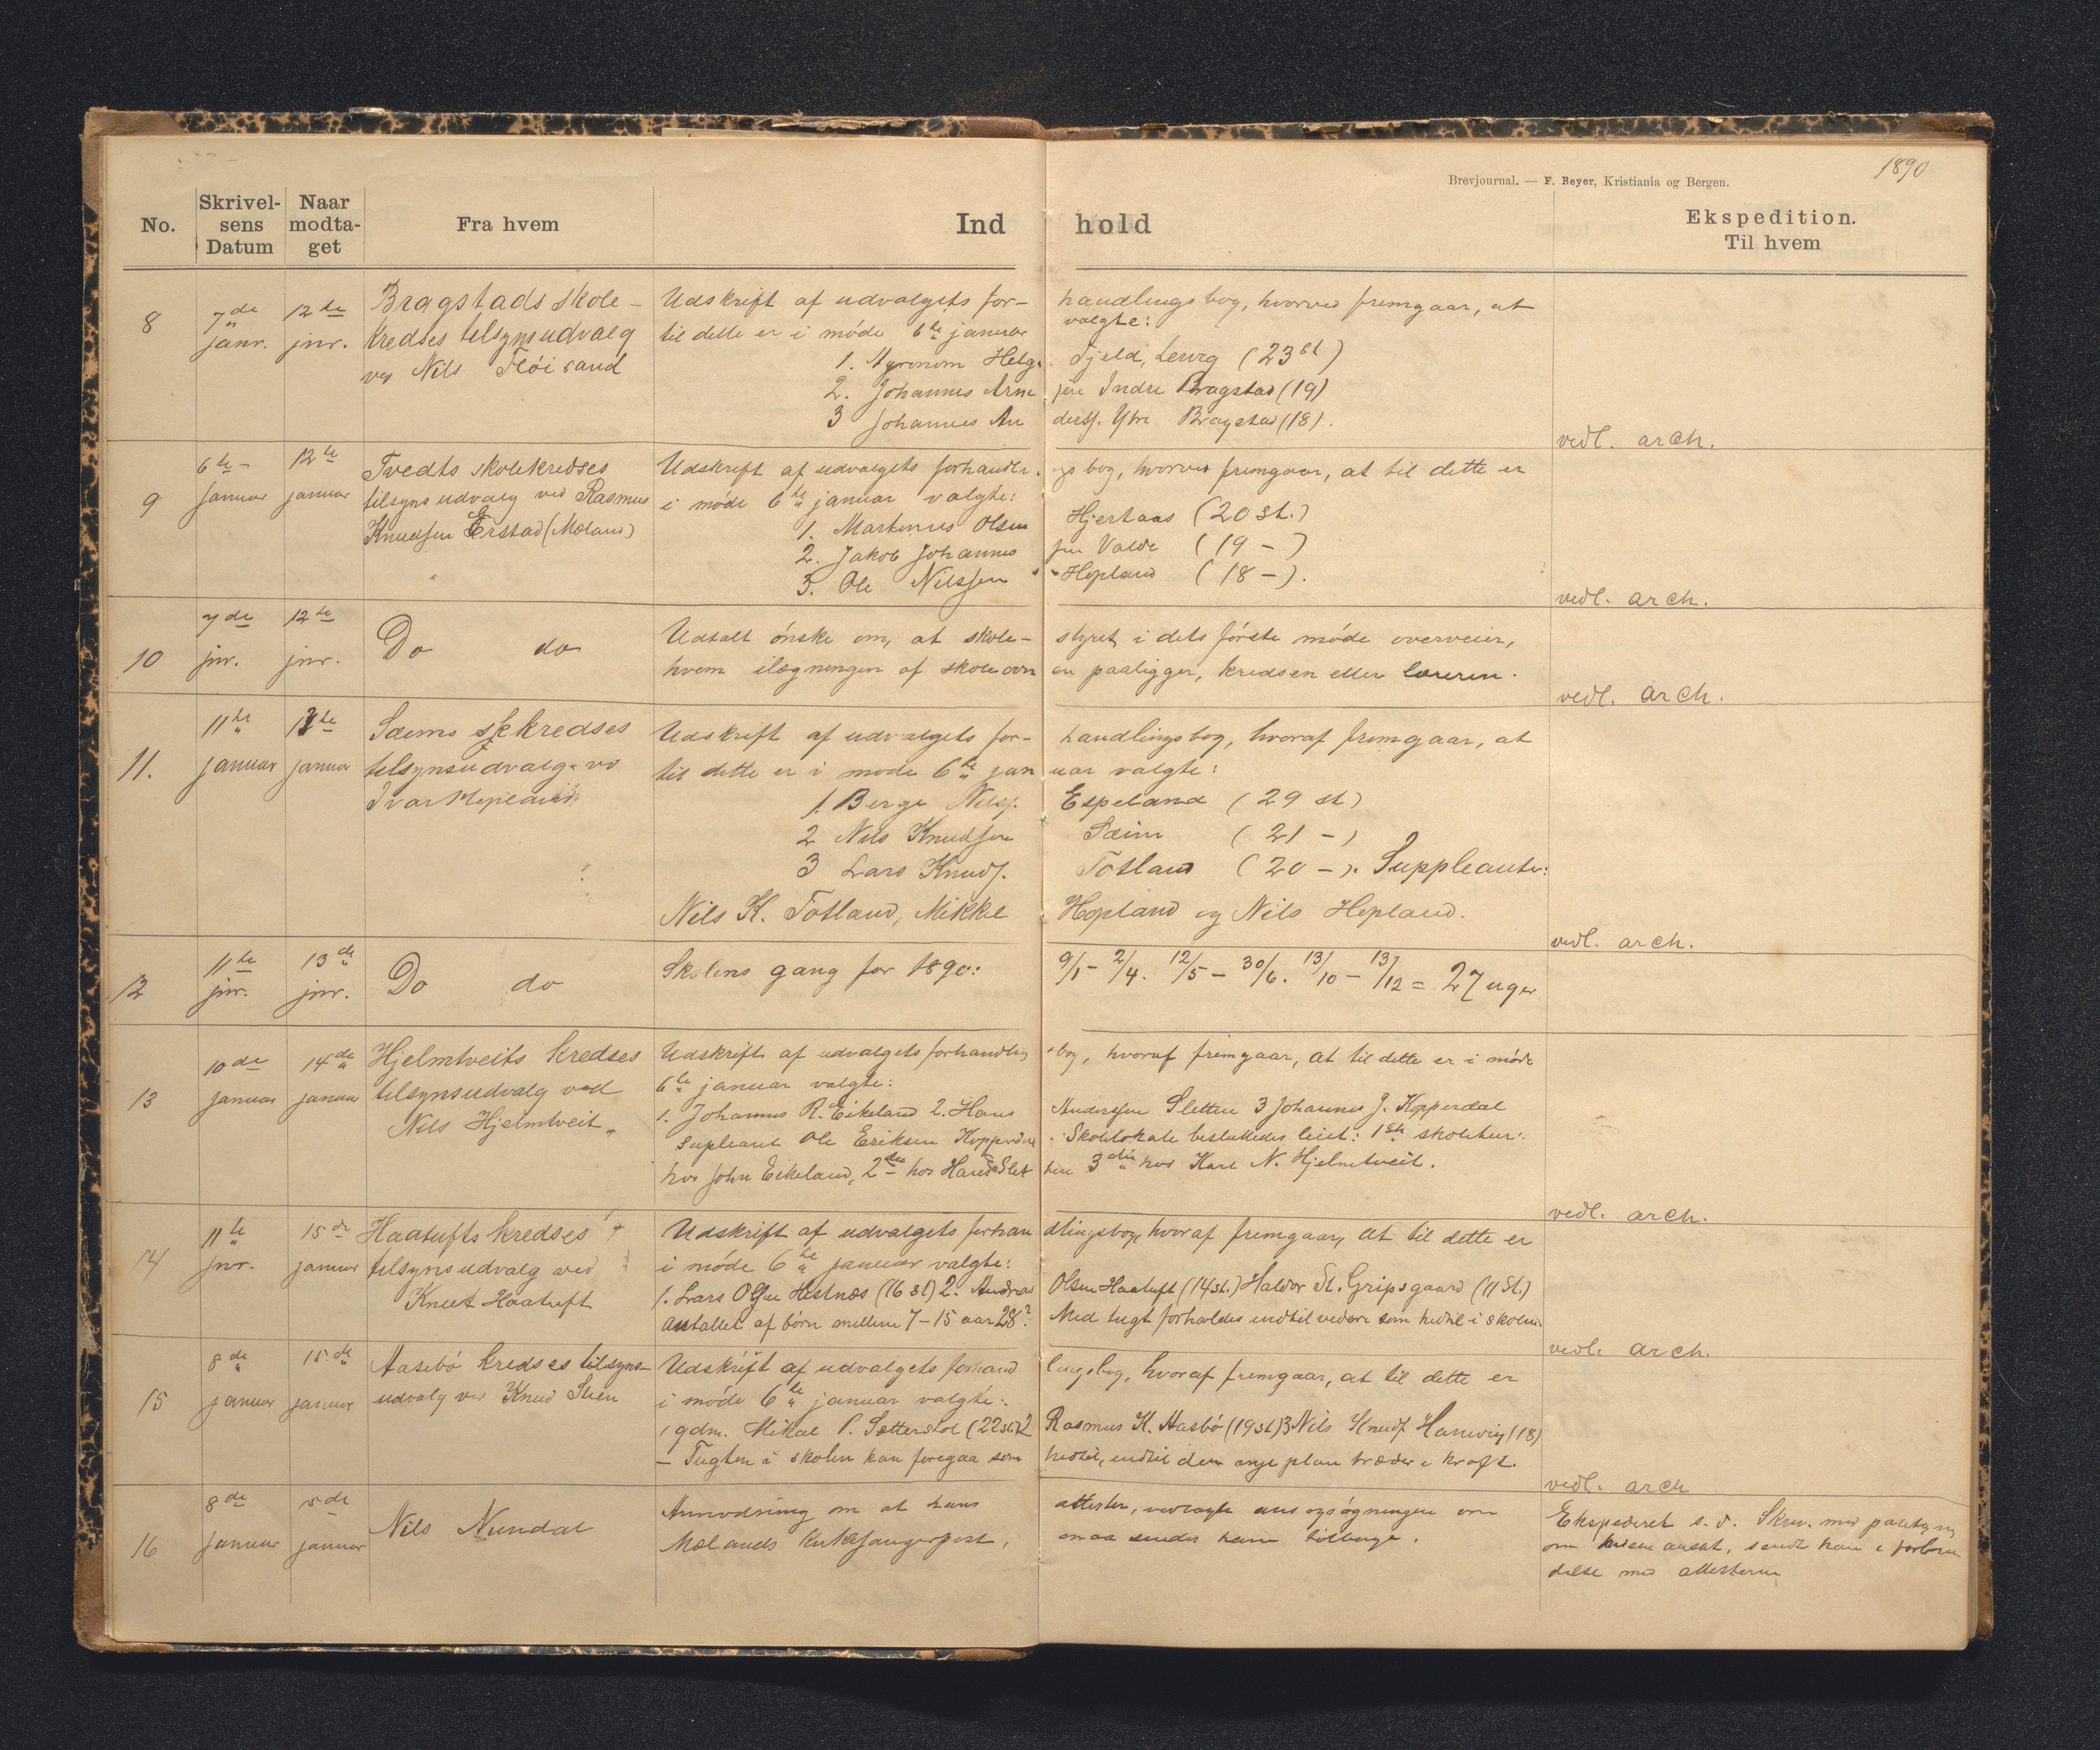 1890
Brevjournal. — F. Beyer, Kristiania og Bergen.
No. Skrivelsens Datum Naar modtaget Fra hvem Ind hold Ekspedition. Til hvem
8 7de janr. 12te jnr. Bragstads skole-
kredses tilsynsudvalg
ved Nils Fløisand
Udskrift af udvalgets for- handlingsbog, hvorved fremgaar, at
til dette er i møde 6te januar valgte:
1. Agronom Helge Fjeld, Lervig (23 st)
2. Johannes Arne sen Indre Bragstad (19)
3 Johannes An derss. Ytre Bragstad (18).
vedl. arch.
9 6te januar 12te januar Tvedts skolekredses
tilsynsudvalg ved Rasmus
Knudsen Erstad (Mæland)
Udskrift af udvalgets forhandlin gsbog, hvorved fremgaar, at til dette er
i møde 6te januar valgte:
1. Martinus Olsen Hjertaas (20 st.)
2. Jakob Johannes sen Valde (19 -)
3. Ole Nilssen Hopland (18 -).
vedl. arch.
10 7de jnr. 12te jnr. Do do
Udtalt ønske om, at skole- styret i dets første møde overveier,
hvem ilægningen af skoleovn en paaligger, kredsen eller læreren.
vedl. arch.
11. 11te januar 13te januar Sæims skkredses
tilsynsudvalg vd
Ivar Hopland
Udskrift af udvalgets for- handlingsbog, hvoraf fremgaar, at
til dette er i møde 6te jan uar valgte:
1. Berge Nilss. Espeland (29 st)
2 Nils Knudsen Sæim (21 -)
3 Lars Knuds. Totland (20 -). Suppleanter:
Nils K. Totland, Mikkel Hopland og Nils Hopland.
vedl. arch.
12 11te jnr. 13de jnr. Do do
Skolens gang for 1890: 9/1 - 2/4. 12/5 - 30/6. 13/10 - 13/12 = 27 uger
13 10de januar 14de januar Hjelmtveits kredses
tilsynsudvalg ved
Nils Hjelmtveit
Udskrift af udvalgets forhandlings bog, hvoraf fremgaar, at til dette er i møde
6te januar valgte:
1. Johannes R. Eikeland 2. Hans Anderssen Sletten 3 Johannes J. Kopperdal
Supleant Ole Eriksen Kopperdal. Skolelokale besluttedes leiet: 1ste skoletur:
hos John Eikeland, 2den hos Hans Slet ten 3die hos Karl N. Hjelmtveit.
vedl. arch.
14 11te jnr. 15de januar Haatufts kredses
tilsynsudvalg ved
Knut Haatuft
Udskrift af udvalgets forhan dlingsbog, hvoraf fremgaar, at til dette er
i møde 6te januar valgte:
1. Lars Olsen Hestnæs (16 st) 2. Andreas Olsen Haatuft (14 st.) Haldor St. Gripsgaard (11 st.)
Antallet af børn mellem 7-15 aar 28? Med tugt forholdes indtil videre som hidtil i skolen.
vedl. arch.
15 8de januar 15de januar Aasebø kredses tilsyns-
udvalg ved Knud Stien
Udskrift af udvalgets forhand lingsbog, hvoraf fremgaar, at til dette er
i møde 6te januar valgte:
1 gdm. Mikal P. Sætterstøl (22 st.) 2 Rasmus K. Aasbø (19 st) 3 Nils Knuds. Hanevig (18)
- Tugten i skolen kan foregaa som hidtil, indtil den nye plan træder i kraft.
vedl. arch
16 8de januar 15de januar Nils Nundal
Anmodning om at hans attester, vedlagte ansøgningen om
Mælands kirkesangerpost, maa sendes ham tilbage.
Ekspederet s. d. Skr. med paategn
om hvem ansat, sendt ham i forbin
delse med attesterne